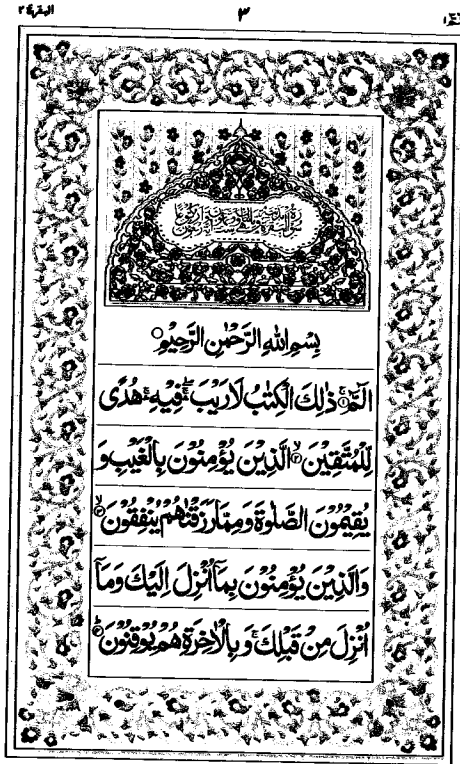 البقرة ٢
٣
بِسْمِ اللهِ الرَّحْمٰنِ الرَّحِيْمِ
الٓمّٓ ۚ﴿۱﴾ ذٰلِكَ الْكِتٰبُ لَا رَيْبَ ۛۖۚ فِيْهِ ۛۚ هُدًى
لِّلْمُتَّقِيْنَ ۙ﴿۲﴾ الَّذِيْنَ يُؤْمِنُوْنَ بِالْغَيْبِ وَ
يُقِيْمُوْنَ الصَّلٰوةَ وَمِمَّا رَزَقْنٰهُمْ يُنْفِقُوْنَ ۙ﴿۳﴾
وَالَّذِيْنَ يُؤْمِنُوْنَ بِمَآ اُنْزِلَ اِلَيْكَ وَمَآ
اُنْزِلَ مِنْ قَبْلِكَ ۚ وَبِالْاٰخِرَةِ هُمْ يُوْقِنُوْنَ ؕ﴿۴﴾